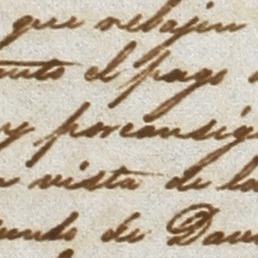 que rebajen
el pago
y porconsig
vista de la
de Dav